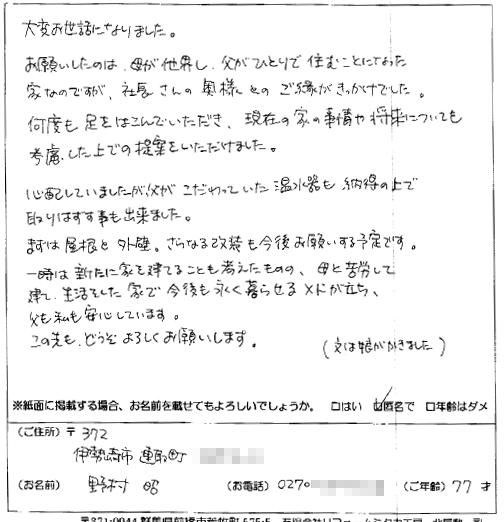 大変お世話になりました。
お願いしたのは、母が他界し、父がひとりで住むことになった
家なのですが、社長さんの奥様とのご縁がきっかけでした。
何度も足をはこんでいただき、現在の家の事情や将来についても
考慮した上での提案をいただけました。
心配していましたが父がこだわっていた温水器も納得の上で
取りはずす事も出来ました。
まずは屋根と外壁。さらなる改装も今後お願いする予定です。
一時は新たに家を建てることも考えたものの、母と苦労して
建て、生活をした家で今後も永く暮らせるメドが立ち、
父も私も安心しています。
この先も、どうぞよろしくお願いします。
(文は娘がかきました)
※紙面に掲載する場合、お名前を載せてもよろしいでしょうか。 □はい ☑匿名で □年齢はダメ
(ご住所)〒372
伊勢崎市連取町
(お名前) 野村 昭 (お電話) 0270 (ご年齢) 77 才